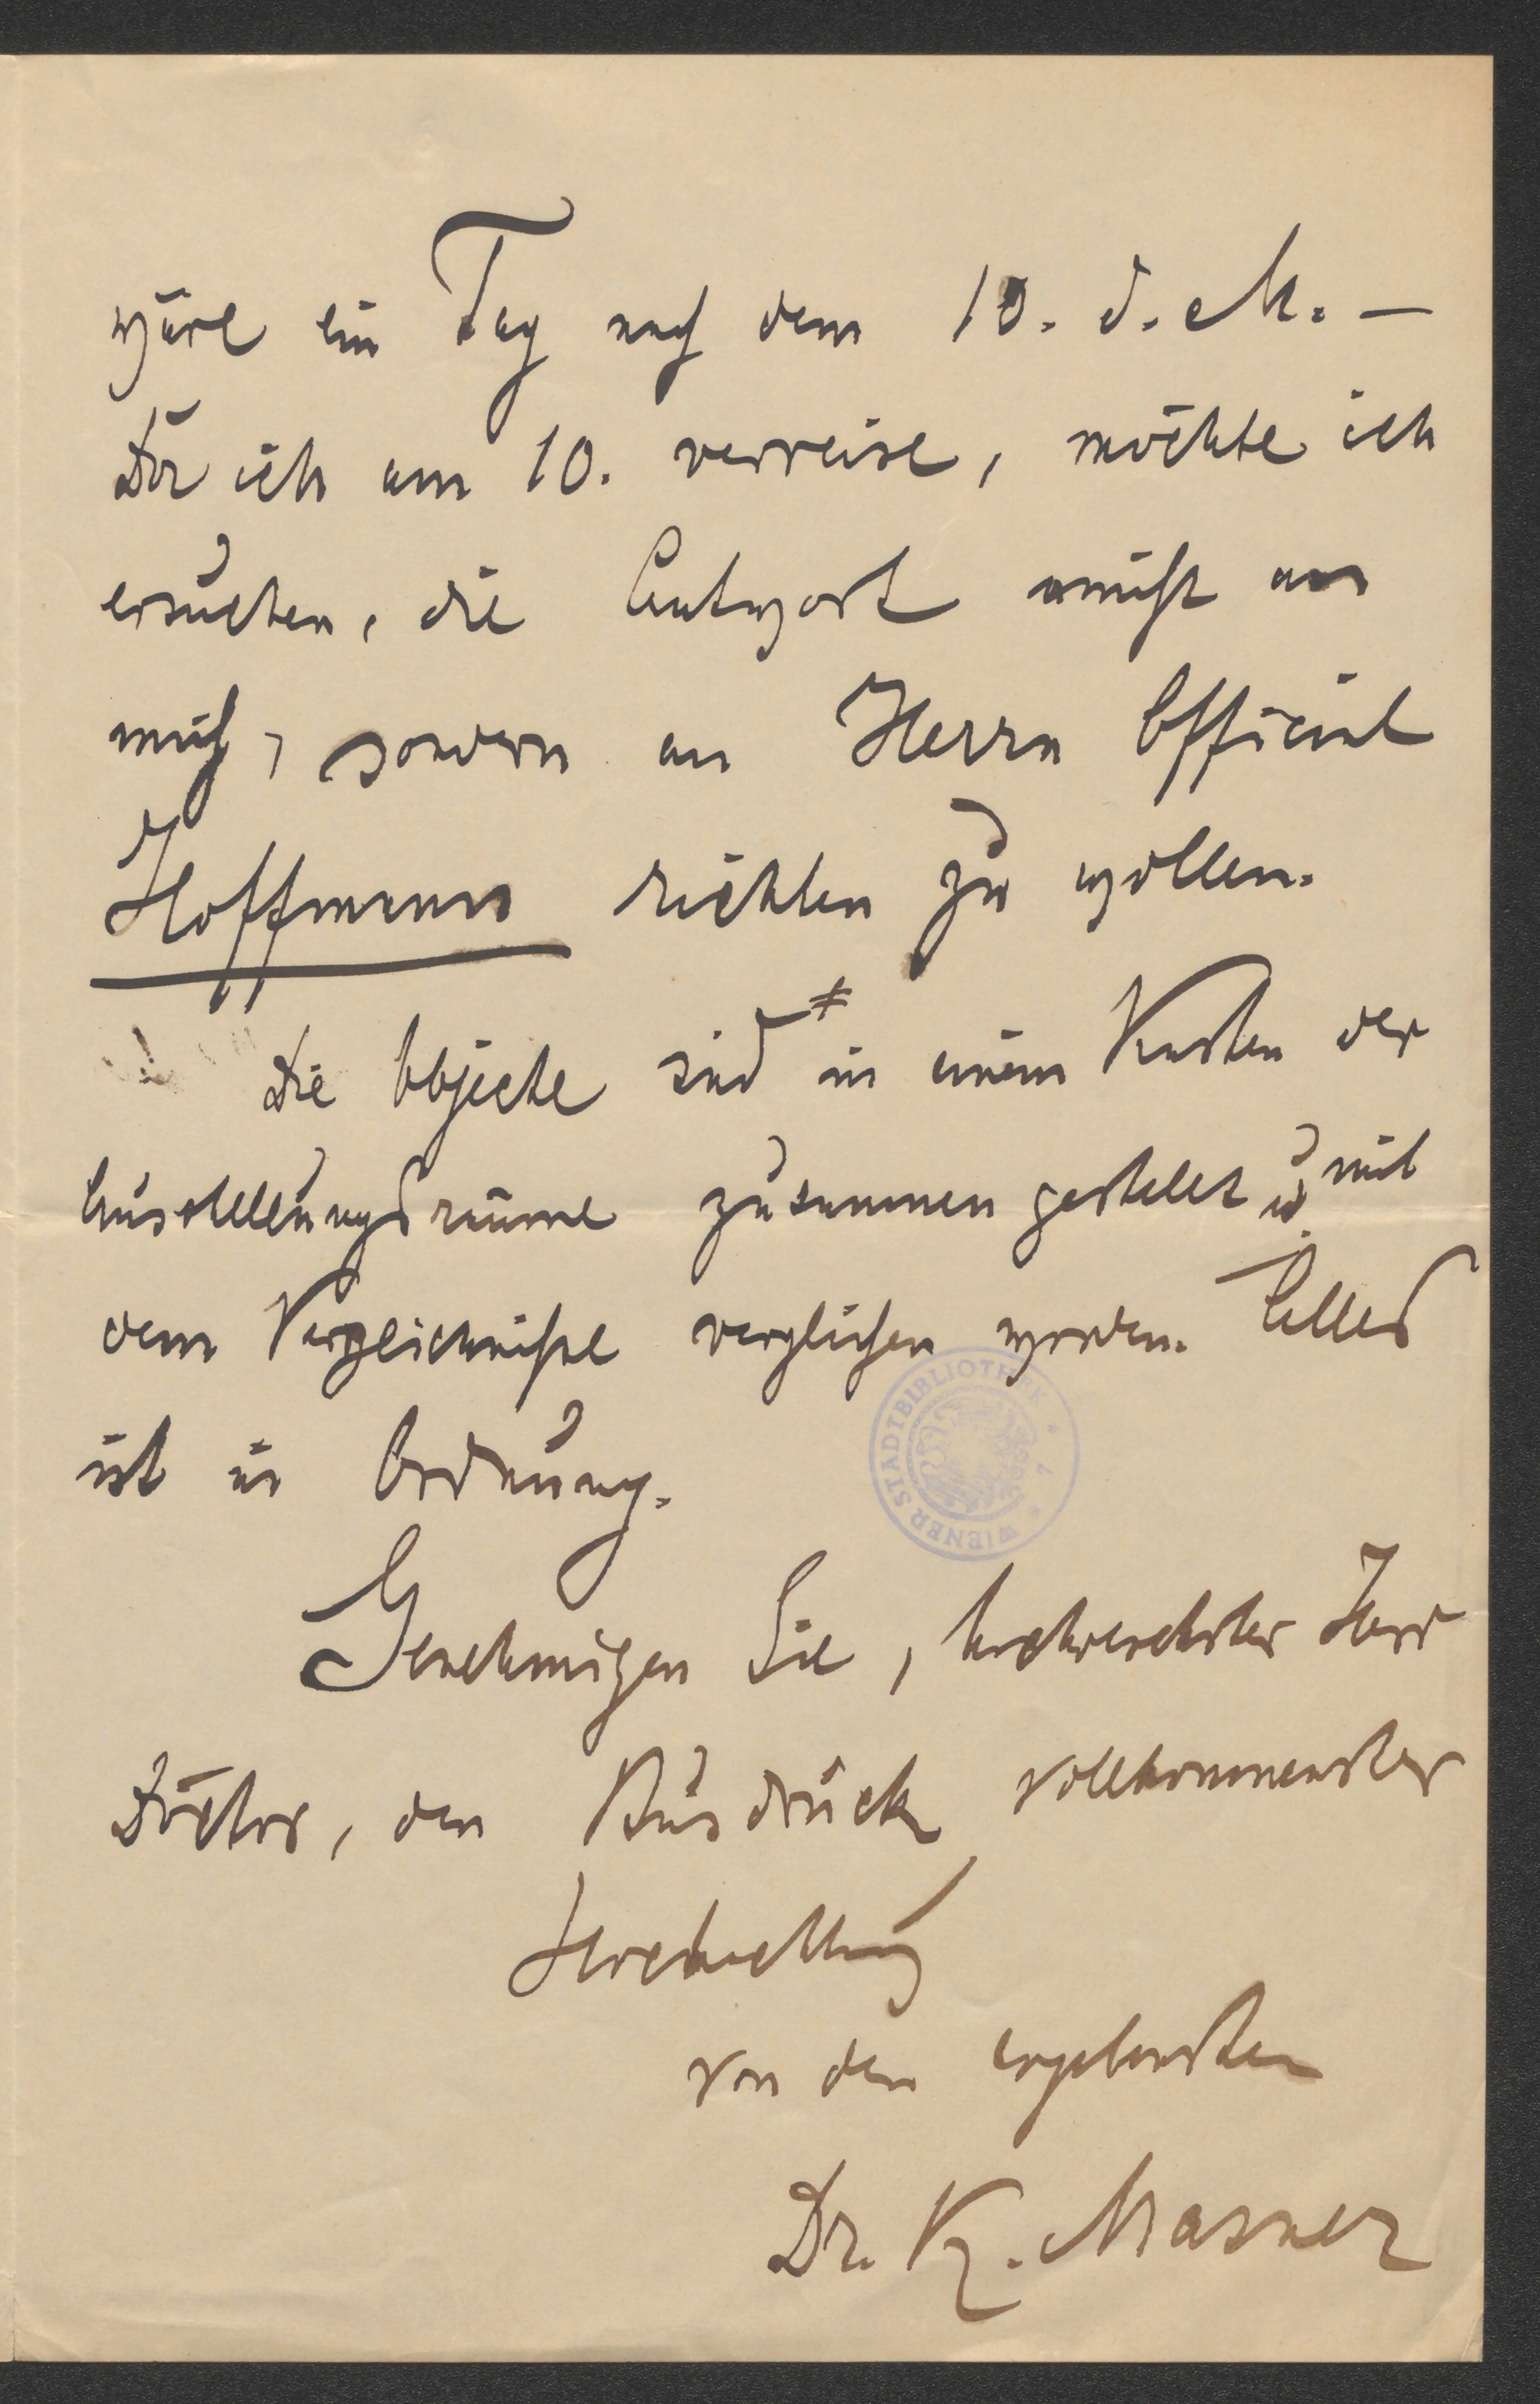 wäre ein Tag nach dem 10. d. M. –
Da ich am 10. verreise, möchte ich
ersuchen, die Antwort nicht an
mich, sondern an Herrn Official
Hoffmann richten zu wollen.
Die Objecte sind ≠ in einem Kasten der
Ausstellungsräume zusammengestellt u. mit
dem Verzeichniße verglichen worden. Alles
ist in Ordnung.
WIENER STADTBIBLIOTHEK
Genehmigen Sie, hochverehrter Herr
Doctor, den Ausdruck vollkommenster
Hochachtung
von dem ergebensten
Dr. K. Masner